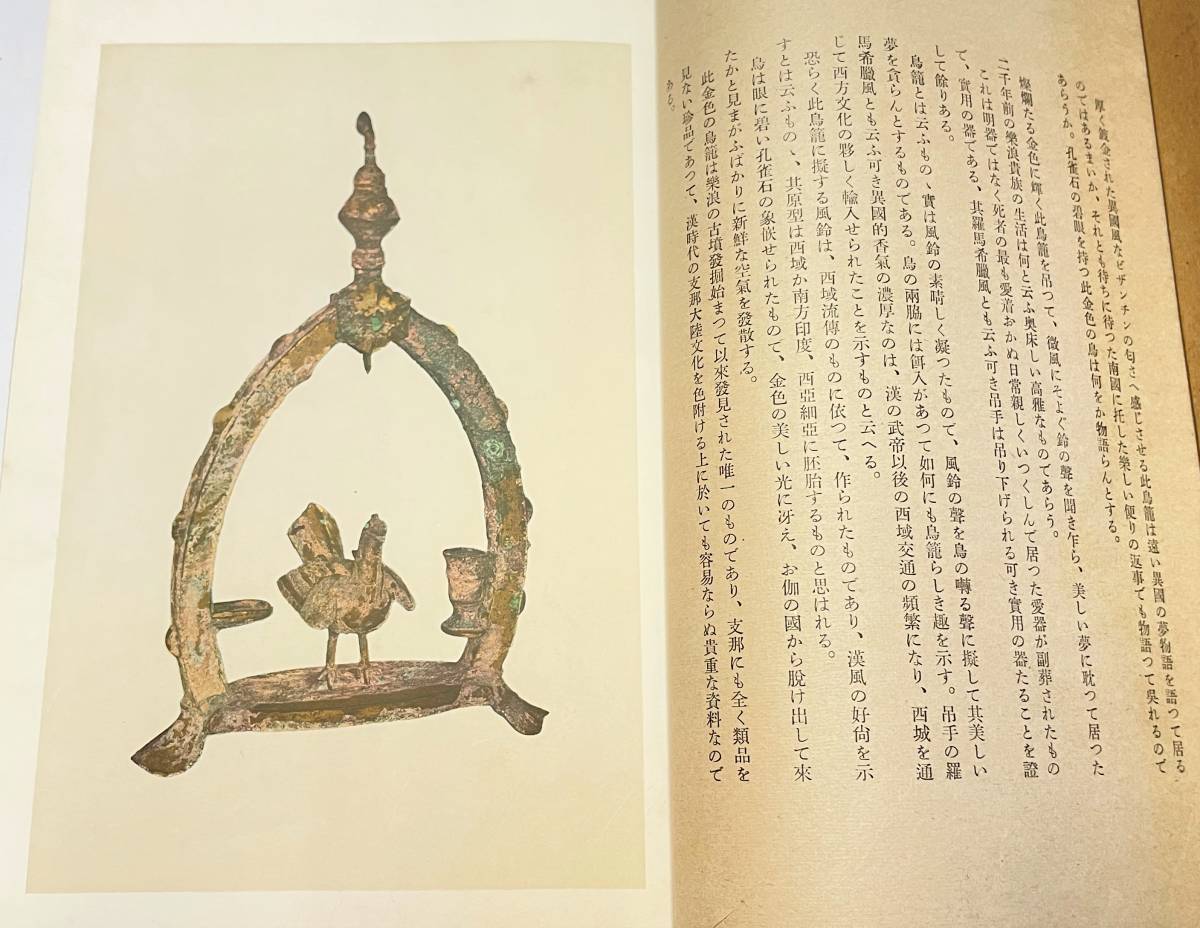 厚く鍍金された異國風なビザンチンの匂さへ感じさせる此鳥籠は遠い異國の夢物語を語つて居る
のではあるまいか、それとも待ちに待つた南國に托した樂しい便りの返事でも物語つて吳れるので
あらうか。孔雀石の碧眼を持つ此金色の鳥は何をか物語らんとする。
燦爛たる金色に輝く此鳥籠を吊つて、微風にそよぐ鈴の聲を聞き乍ら、美しい夢に耽つて居つた
二千年前の樂浪貴族の生活は何と云ふ奥床しい高雅なものであらう。
これは明器ではなく死者の最も愛着おかぬ日常親しくいつくしんで居つた愛器が副葬されたもの
で、實用の器である、其羅馬希臘風とも云ふ可き吊手は吊り下げられる可き實用の器たることを證
して餘りある。
鳥籠とは云ふものゝ實は風鈴の素晴しく凝つたもので、風鈴の聲を鳥の囀る聲に擬して其美しい
夢を貪らんとするものである。鳥の兩脇には餌入があつて如何にも鳥籠らしき趣を示す。吊手の羅
馬希臘風とも云ふ可き異國的香氣の濃厚なのは、漢の武帝以後の西域交通の頻繁になり、西城を通
じて西方文化の夥しく輸入せられたことを示すものと云へる。
恐らく此鳥籠に擬する風鈴は、西域流傳のものに依つて、作られたものであり、漢風の好尙を示
すとは云ふものゝ、其原型は西域か南方印度、西亞細亞に胚胎するものと思はれる。
鳥は眼に碧い孔雀石の象嵌せられたもので、金色の美しい光に冴え、お伽の國から脫け出して來
たかと見まがふばかりに新鮮な空氣を發散する。
此金色の鳥籠は樂浪の古墳發掘始まつて以來發見された唯一のものであり、支那にも全く類品を
見ない珍品であつて、漢時代の支那大陸文化を色附ける上に於いても容易ならぬ貴重な資料なので
ある。